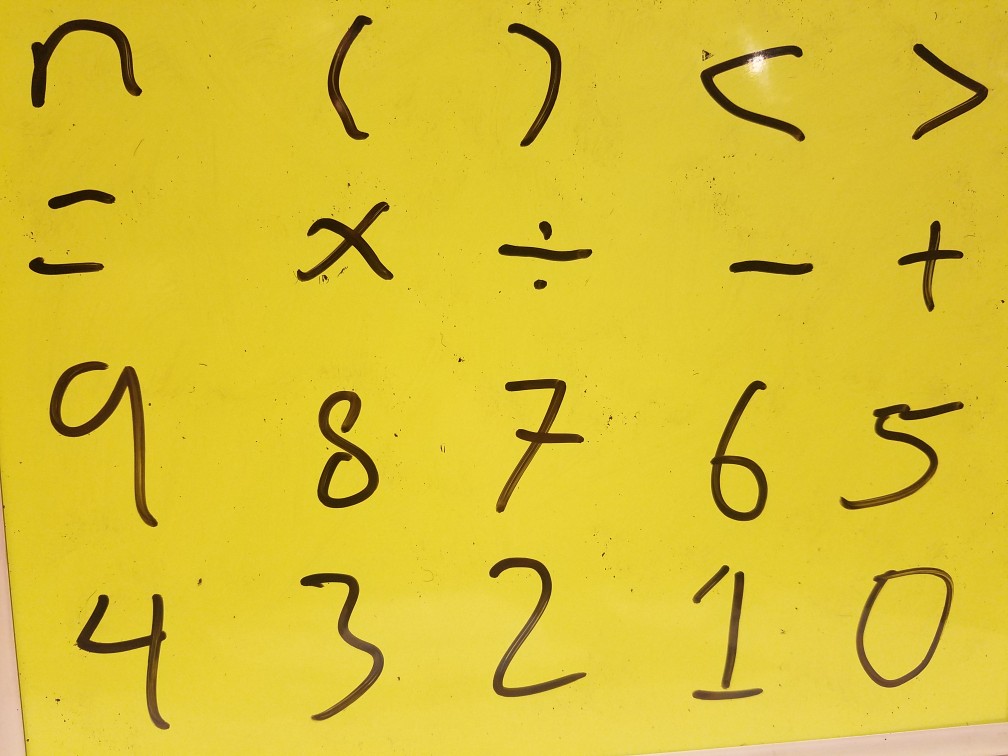 n ( ) < >
= × ÷ − +
9 8 7 6 5
4 3 2 1 0